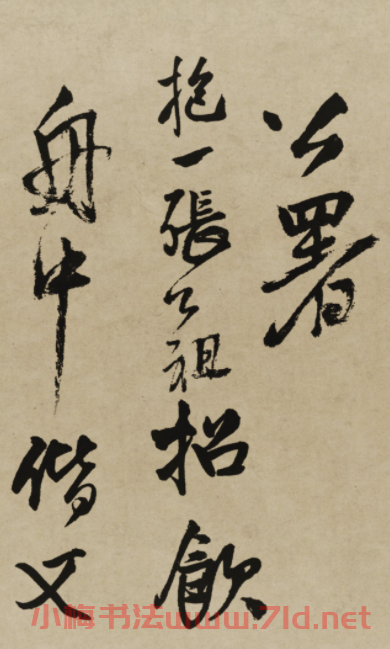 公署
抱一張公祖招飲
舟中偕文
小梅书法www.7ld.net